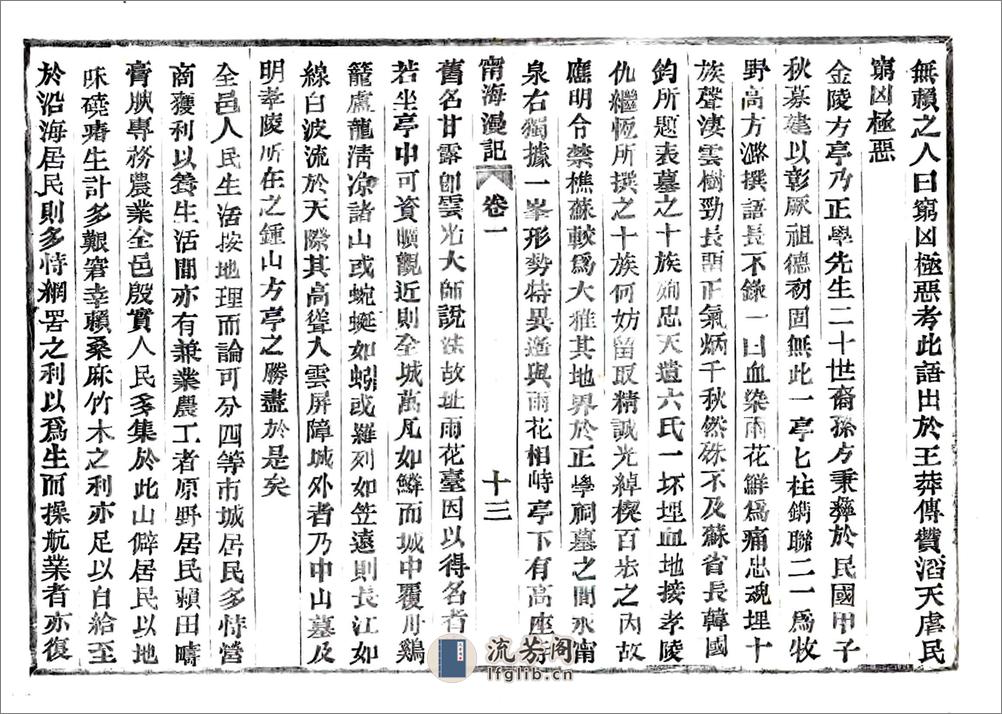 無賴之人曰窮凶極惡考此語出於王莽傳贊滔天虐民
窮凶極惡
金陵方亭乃正學先生二十世裔孫方秉彝於民國甲子
秋募建以彰厥祖德初固無此一亭也柱鐫聯二一爲牧
野高方潞撰語長不錄一曰血染雨花鮮爲痛忠魂埋十
族聲淒雲樹勁長留正氣炳千秋然殊不及蘇省長韓國
鈞所題表墓之十族殉忠天遺六氏一坏埋血地接孝陵
仇繼恆所撰之十族何妨留取精誠光綽楔百步之內故
應明令禁樵蘇較爲大雅其地界於正學祠墓之間永甯
泉右獨據一峯形勢特異遙與雨花相峙亭下有高座寺
甯海漫記 卷一 十三
舊名甘露卽雲光大師說法故址雨花臺因以得名者
若坐亭中可資曠觀近則全城萬瓦如鱗而城中覆舟鷄
籠盧龍清凉諸山或蜿蜒如蚓或羅列如笠遠則長江如
線白波流於天際其高聳入雲屏障城外者乃中山墓及
明孝陵所在之鍾山方亭之勝盡於是矣
全邑人民生活按地理而論可分四等市城居民多恃營
商獲利以養生活閒亦有兼業農工者原野居民賴田疇
膏腴專務農業全邑殷實人民多集於此山僻居民以地
味磽瘠生計多艱窘幸賴桑麻竹木之利亦足以自給至
於沿海居民則多恃網罟之利以爲生而操航業者亦復
流芳阁
lfglib.cn